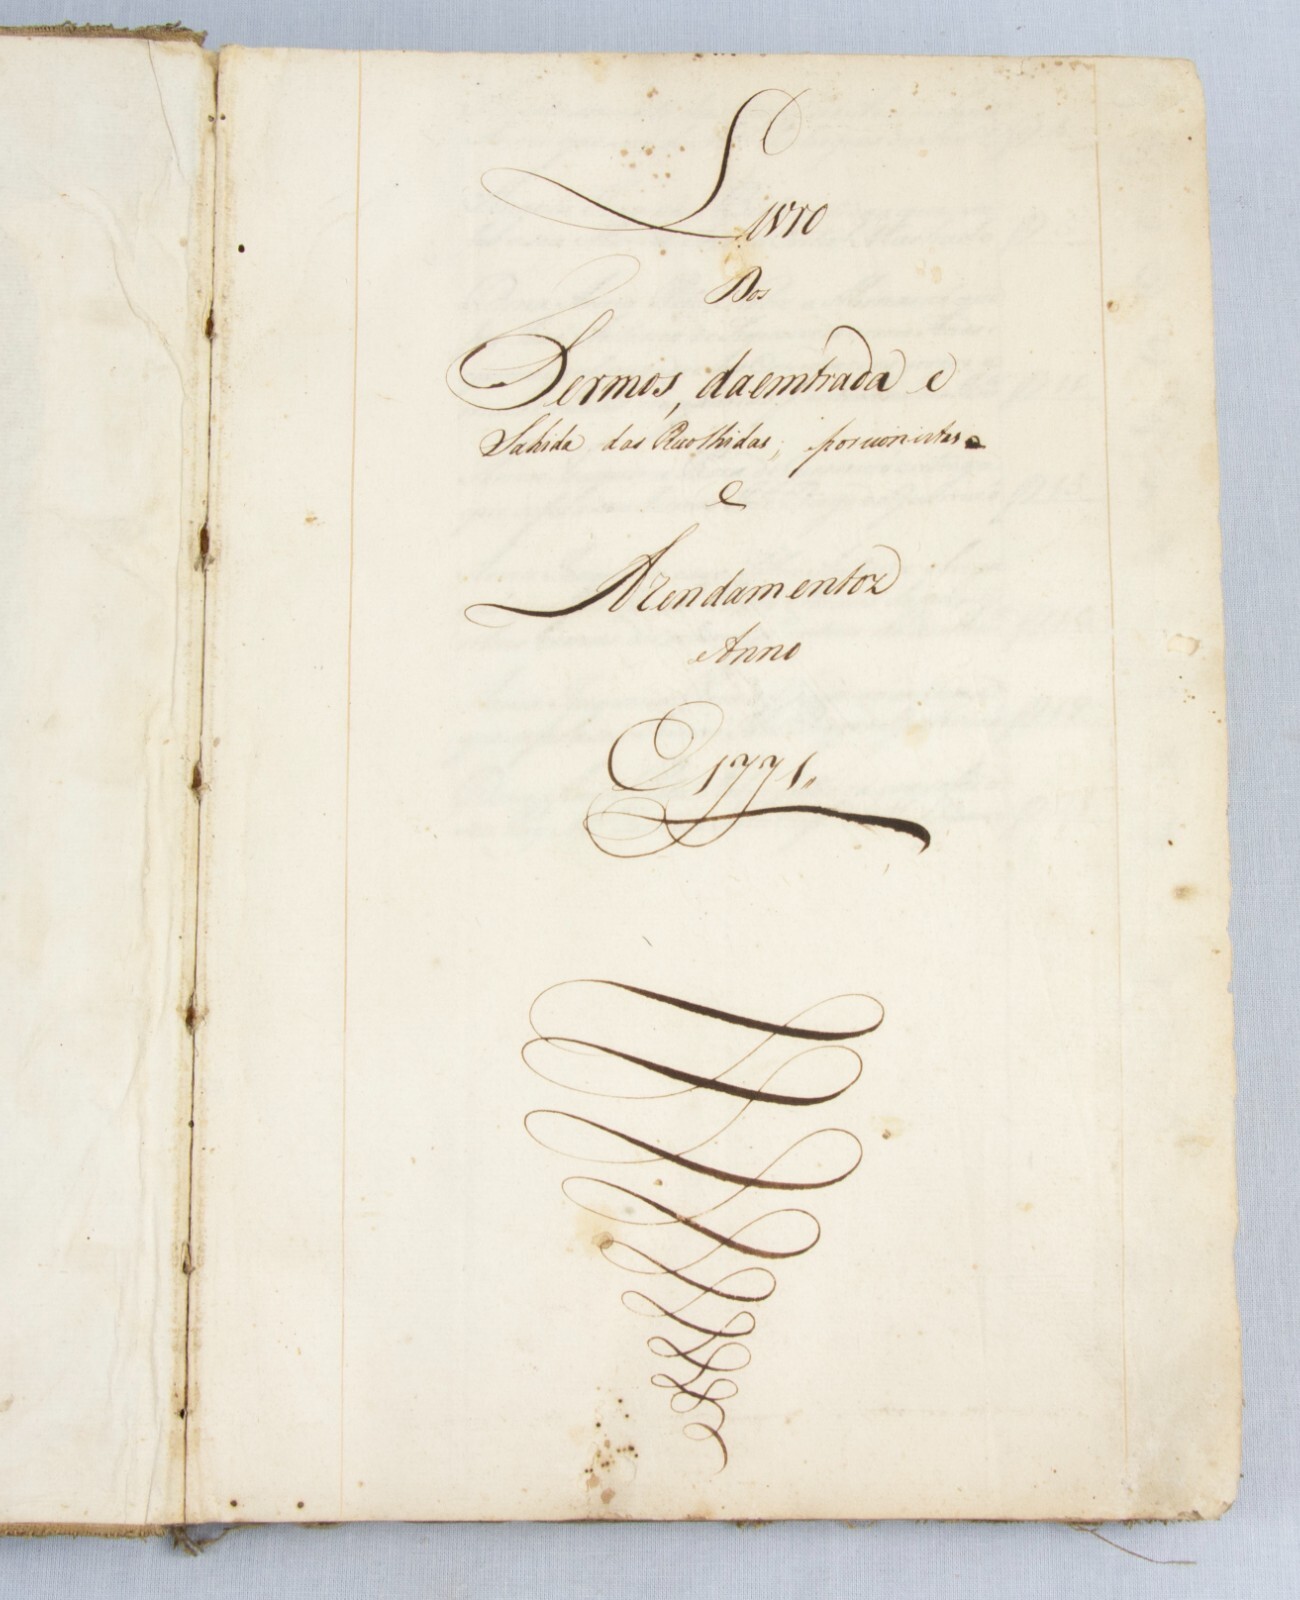 Livro
Dos
Termos, da emtrada e
Sahida das Recolhidas, porcionistas
e
Arendamentoz
Anno
1771